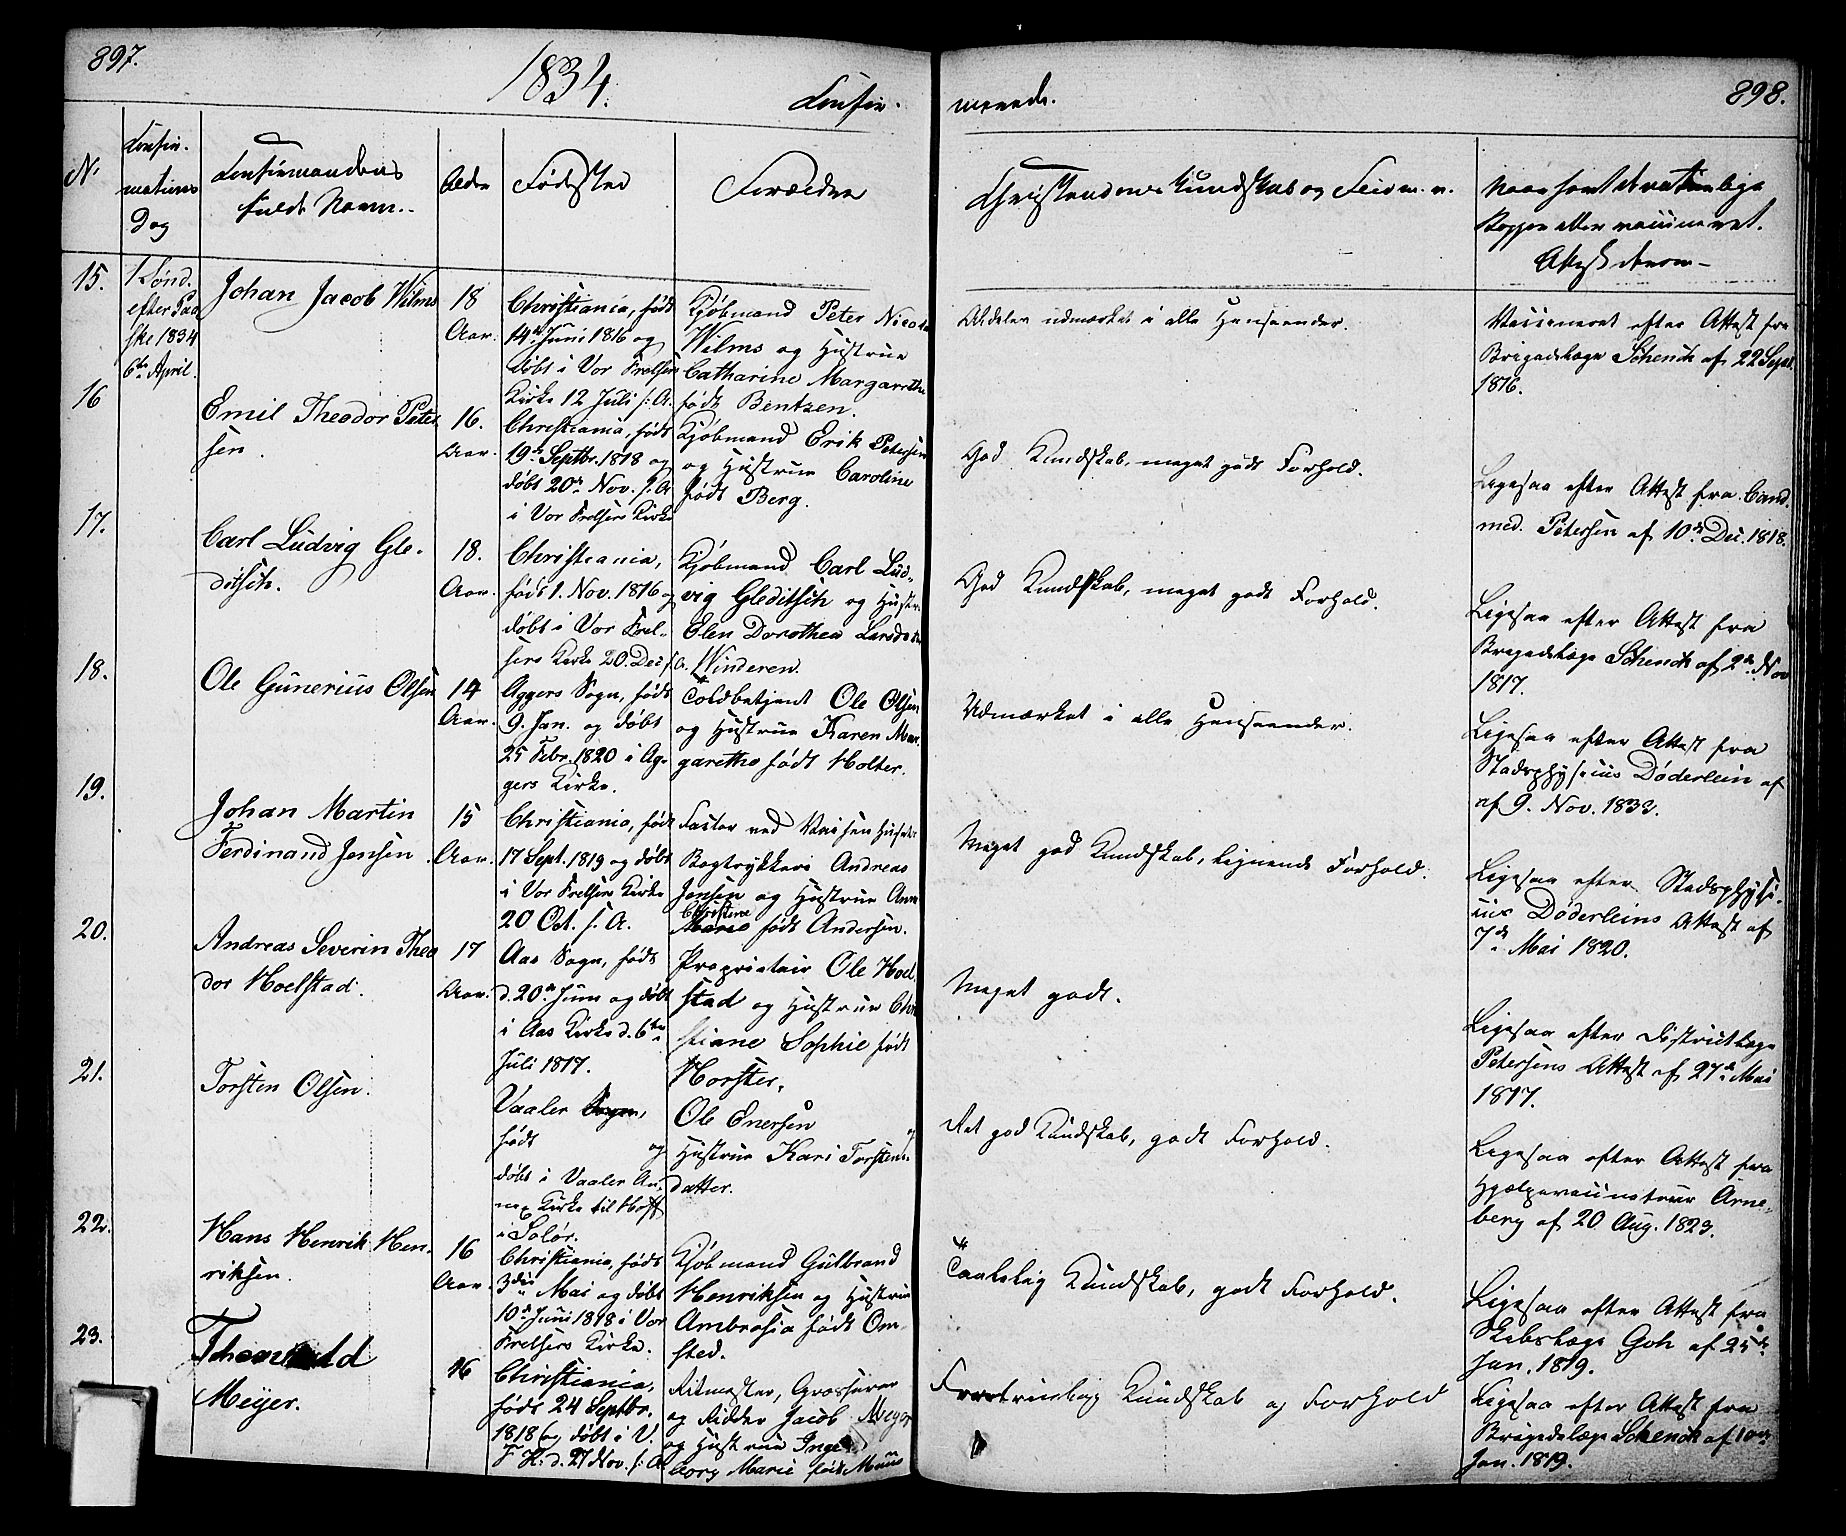 897.
1834.
Confir-
N.
Confir-
mations
Dag
Confirmandens
fulde Navn.
Alder
Fødested
Forældre
15.
1 Sønd.
efter Paa
ske 1834
6te April.
Johan Jacob Wilms
18
Aar.
Christiania, født
14de Juni 1816 og
døbt i Vor Frelsers
Kirke 12 Juli s. A.
Kjøbmand Peter Nicolai
Wilms og Hustrue
Catharine Margarethe
født Bentzen.
16
Emil Theodor Peter
sen.
16.
Aar.
Christiania, født
19de Septbr. 1818 og
døbt 20de Nov. s. A
i Vor Frelsers Kirke
Kjøbmand Erik Petersen
og Hustrue Caroline
født Berg.
17.
Carl Ludvig Gle-
ditsch.
18.
Aar.
Christiania,
født 1. Nov. 1816 og
døbt i Vor Frel-
sers Kirke 20. Dec. s. A.
Kjøbmand Carl Lud-
vig Gleditsch og Hustr.
Elen Dorothea Larsdatter
Winderen.
18.
Ole Gunerius Olsen
14
Aar.
Aggers Sogn, født
9. Jan. og døbt
25 Febr. 1820 i Ag-
gers Kirke.
Toldbetjent Ole Olsen
og Hustrue Karen Mar-
garethe født Holter.
19.
Johan Martin
Ferdinand Jensen
15
Aar.
Christiania, født
17 Sept. 1819 og døbt
i Vor Frelsers Kirke
20 Oct. s. A.
Faster ved Vaisenhuset
Bogtrykkeri Andreas
Jensen og Hustrue Anne
Christine
Marie født Andersen.
20.
Andreas Severin Theo
dor Hoelstad.
17
Aar.
Aas Sogn, født
d. 20de Juni og døbt
i Aas Kirke d. 6te
Juli 1817.
Proprietair Ole Hoel
stad og Hustrue Chri
stiane Sophie født
Horster,
21.
Torsten Olsen.
Vaaler Sogn,
født og
døbt i Vaaler An-
nex Kirke til Hoff
i Solør.
Ole Enersen og
Hustrue Kari Torstens-
datter.
22.
Hans Henrik Hen-
riksen.
16
Aar.
Christiania, født
3die Mai og døbt
10de Juni 1818 i Vor
Frelsers Kirke.
Kjøbmand Gulbrand
Henriksen og Hustrue
Ambrosia født Om-
sted.
23.
Thorvald
Meyer.
16
Christiania,
født 24 Septbr.
1818 og døbt i V.
F. K. d. 27 Nov. s. A.
Ritmester, Grosserer
og Ridder Jacob Meyer
og Hustrue Inge
borg Marie født Muus
898.
merede.
Christendoms Kundskab og Flid m. v.
Naar han havt de naturlige
Kopper eller vaccineret.
Attest derom-
Aldeles udmærket i alle Henseender.
Vaccineret efter Attest fra
Brigadelæge Schenck af 22 Sept.
1816.
God Kundskab, meget godt Forhold.
Ligesaa efter Attest fra Cand.
med. Petersen af 10de Dec. 1818.
God Kundskab, meget godt Forhold.
Ligesaa efter Attest fra
Brigadelæge Schenck af 2de Nov
1817.
Udmærket i alle Henseender.
Ligesaa efter Attest fra
Stadsphysicus Døderlein af
af 9. Nov. 1833.
Meget god Kundskab, lignende Forhold.
Ligesaa efter Stadsphysi-
cus Døderleins Attest af
7de Mai 1820.
Meget godt.
Ligesaa efter Districtlæge
Petersens Attest af 27de Mai
1817.
Ret god Kundskab, godt Forhold.
Ligesaa efter Attest fra
Hjælpevaccinateur Arne-
berg af 20 Aug. 1823.
Taalelig Kundskab, godt Forhold.
Ligesaa efter Attest fra
Skibslæge Goh af 25de
Jan. 1819.
Fortrinlig Kundskab og Forhold
Ligesaa efter Attest fra
Brigadelæge Schenck af 10de
Jan. 1819.